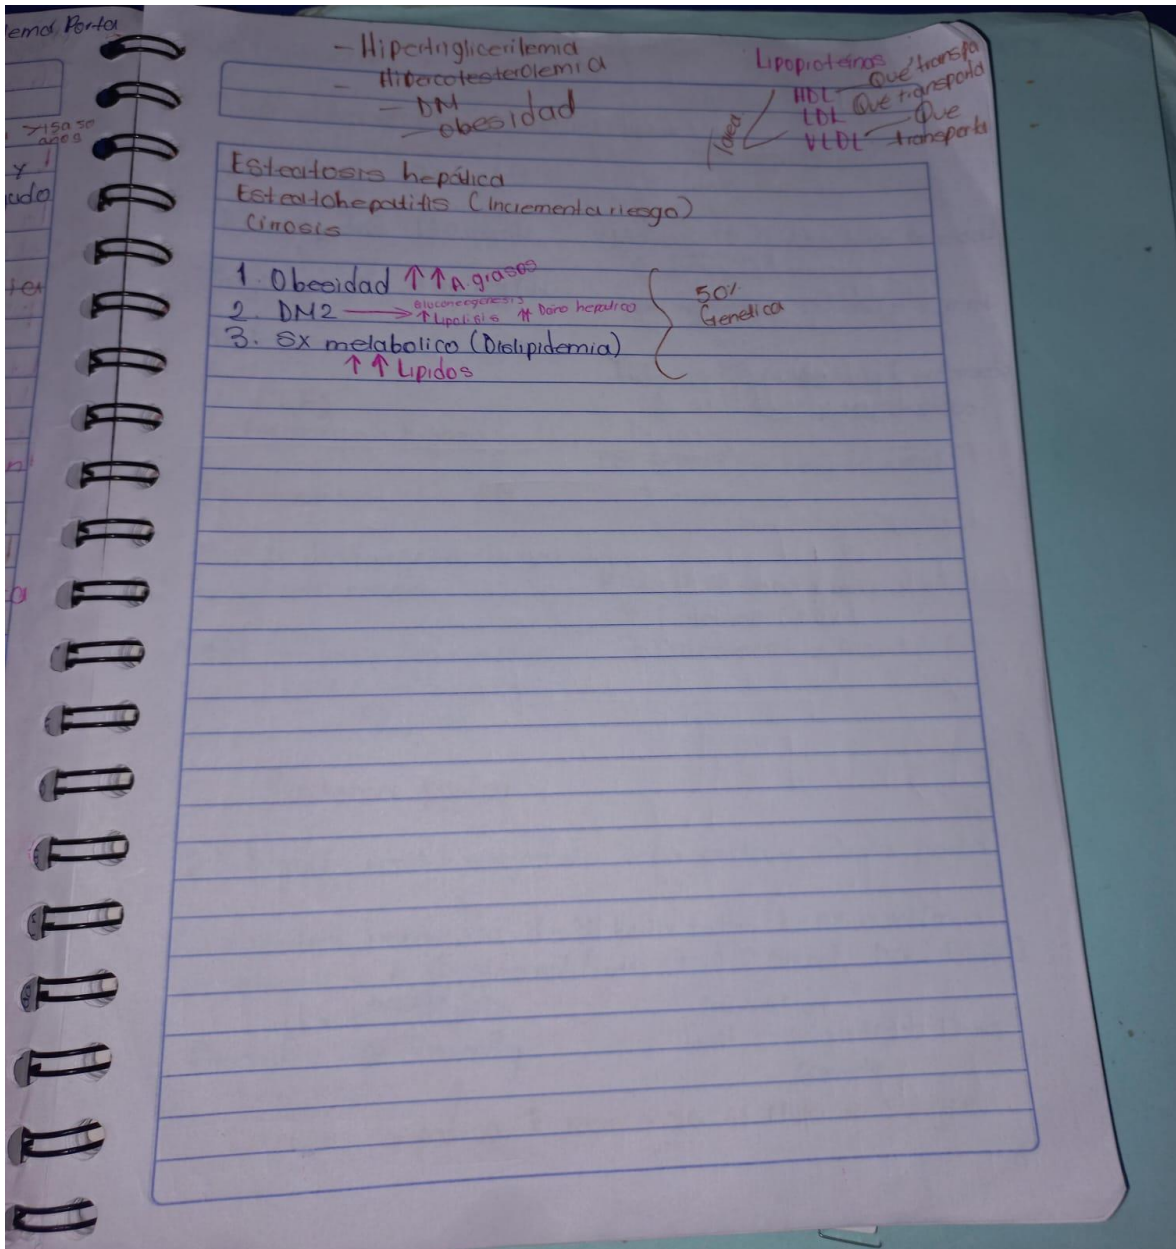 ema Porta
- Hipertrigliceridemia
- Hipercolesterolemia
- DM
- obesidad
Lipoproteínas
HDL - Que transpa
LDL Que transporta
VLDL - Que transporta
Tarea
años
y
cudo
Esteatosis hepática
Esteatohepatitis (Incrementa riesgo)
Cirrosis
1. Obesidad ↑↑ A. grasos
2. DM2 → Gluconeogenesis
↑ Lipolisis ⇈ Daño hepatico
3. SX metabolico (Dislipidemia)
↑ ↑ Lipidos
50%
Genetica